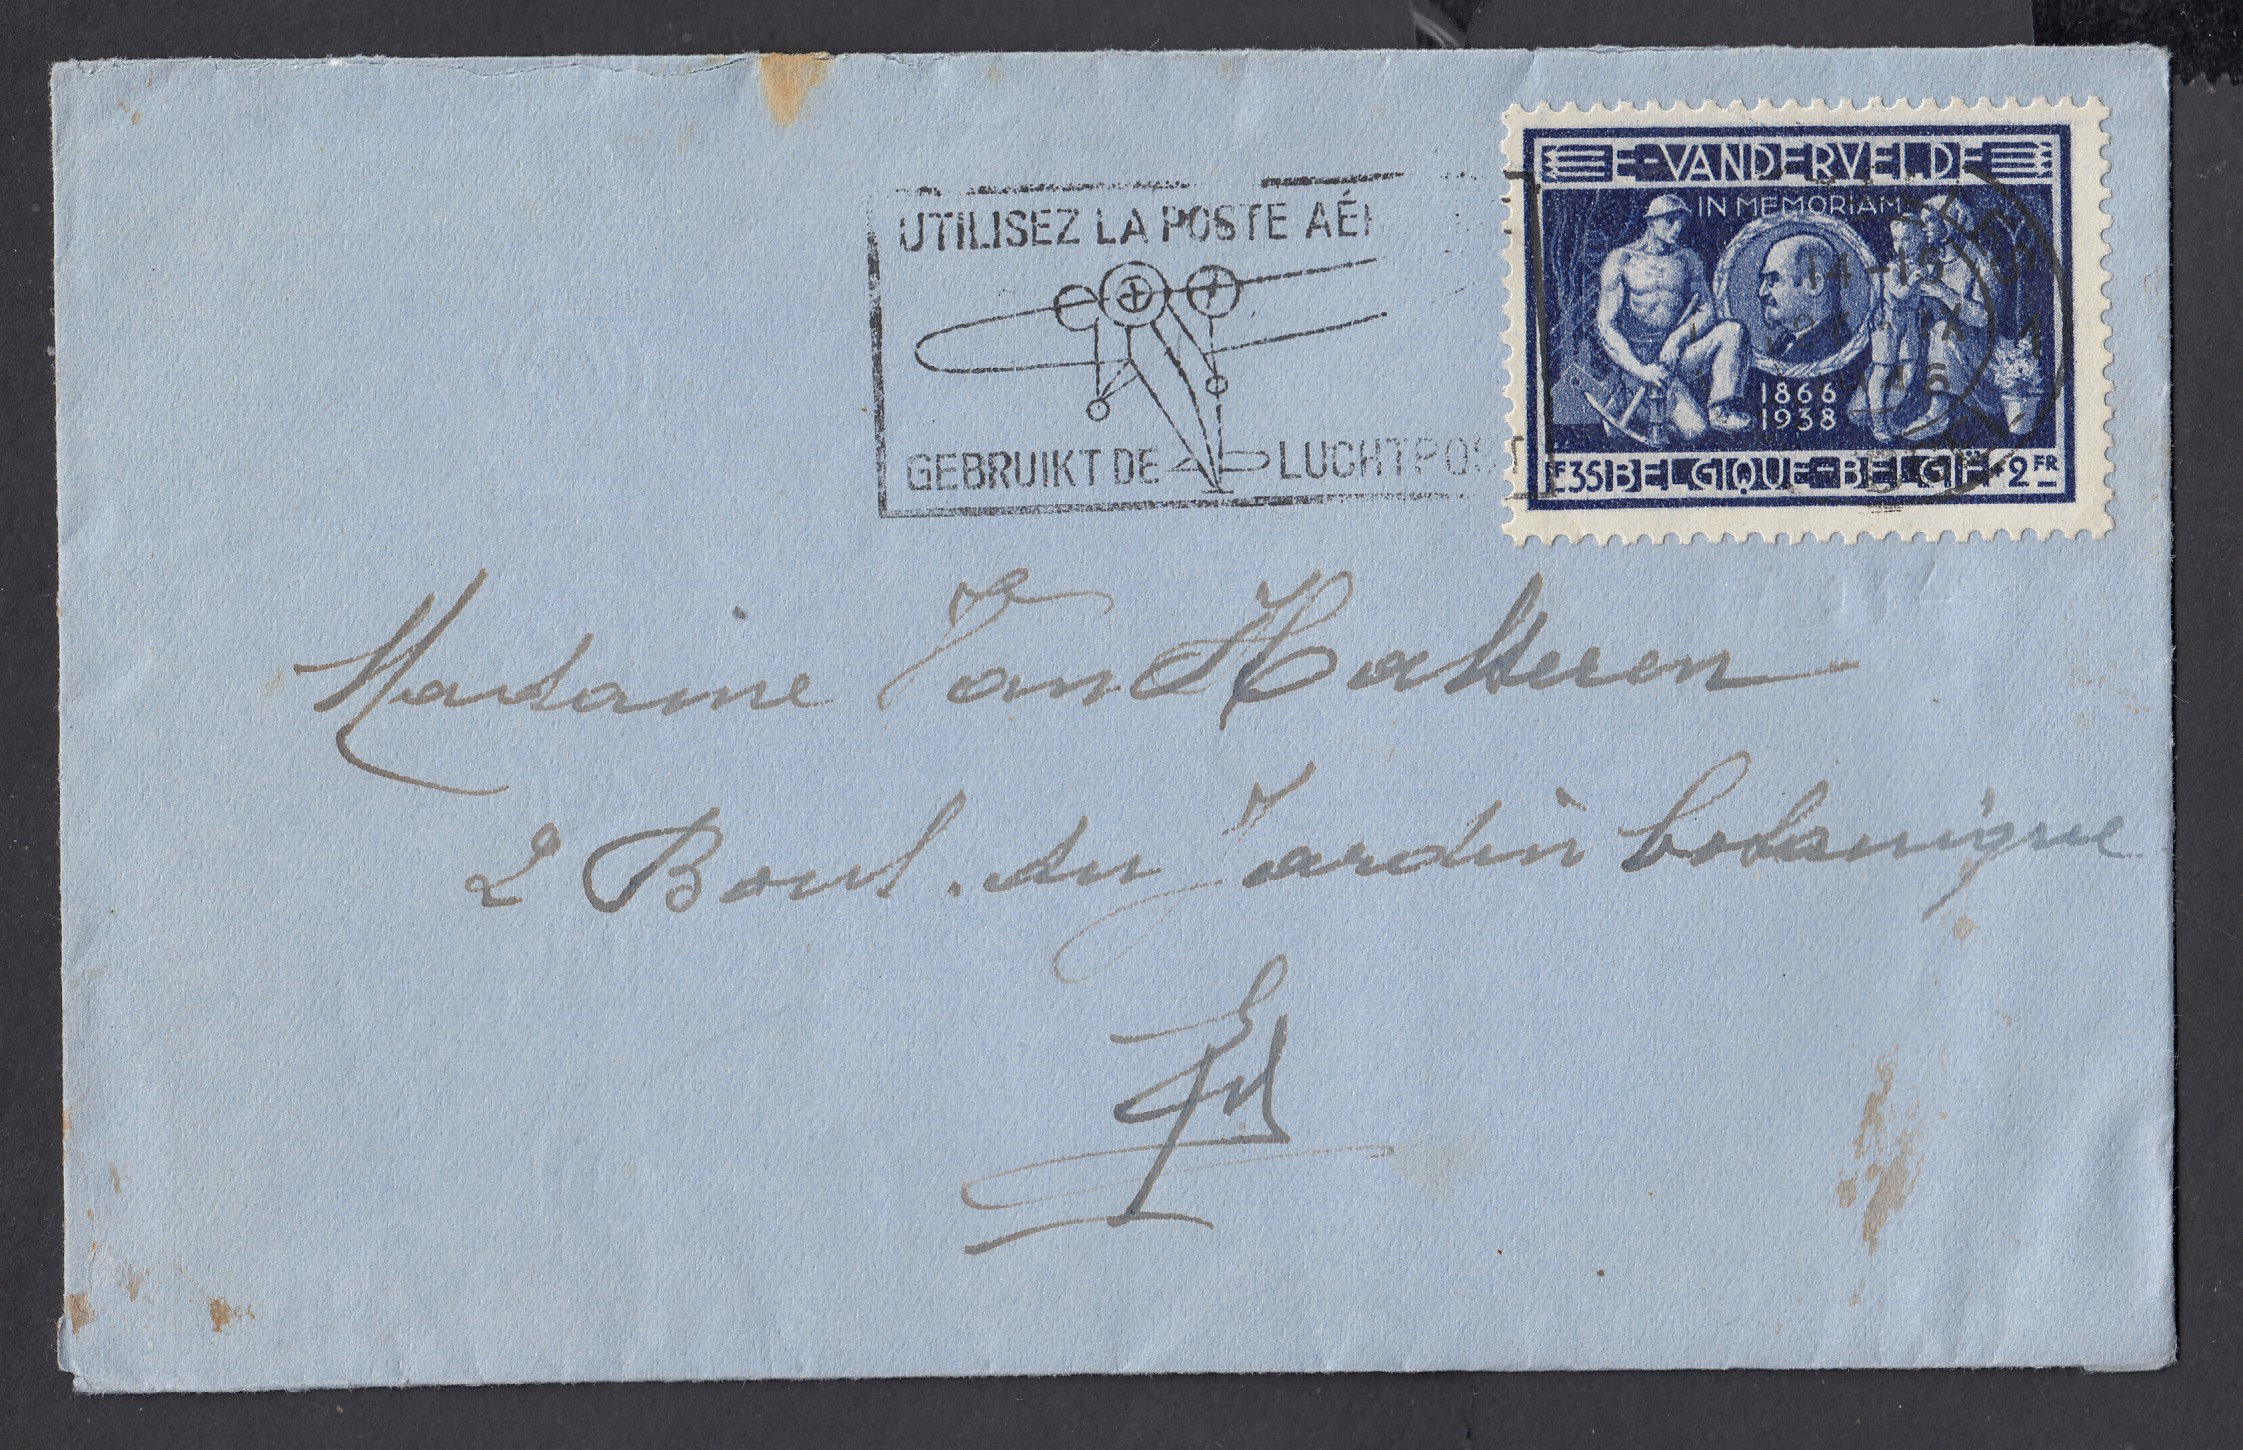 UTILISEZ LA POSTE AÉR
GEBRUIKT DE LUCHTPOST
E-VANDERVELDE
IN MEMORIAM
14-15
IX
1866
1938
1F35 BELGIQUE-BELGIË +2FR
Madame Van Halteren
2 Boul. du Jardin botanique